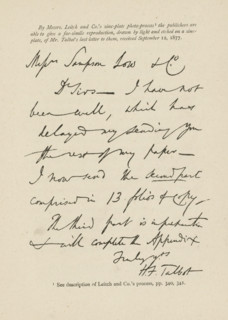 By Messrs. Leitch and Co.'s zinc-plate photo-process¹ the publishers are
able to give a fac-simile reproduction, drawn by light and etched on a zinc-
plate, of Mr. Talbot's last letter to them, received September 12, 1877.
Messrs Sampson Low & Co
Dr Sirs – I have not
been well, which has
delayed my sending you
the rest of my paper –
I now send the second part
comprised in 13 folios of copy.
The third part is
& will complete the Appendix
Truly yrs
H F Talbot
¹ See description of Leitch and Co.'s process, pp. 340, 341.